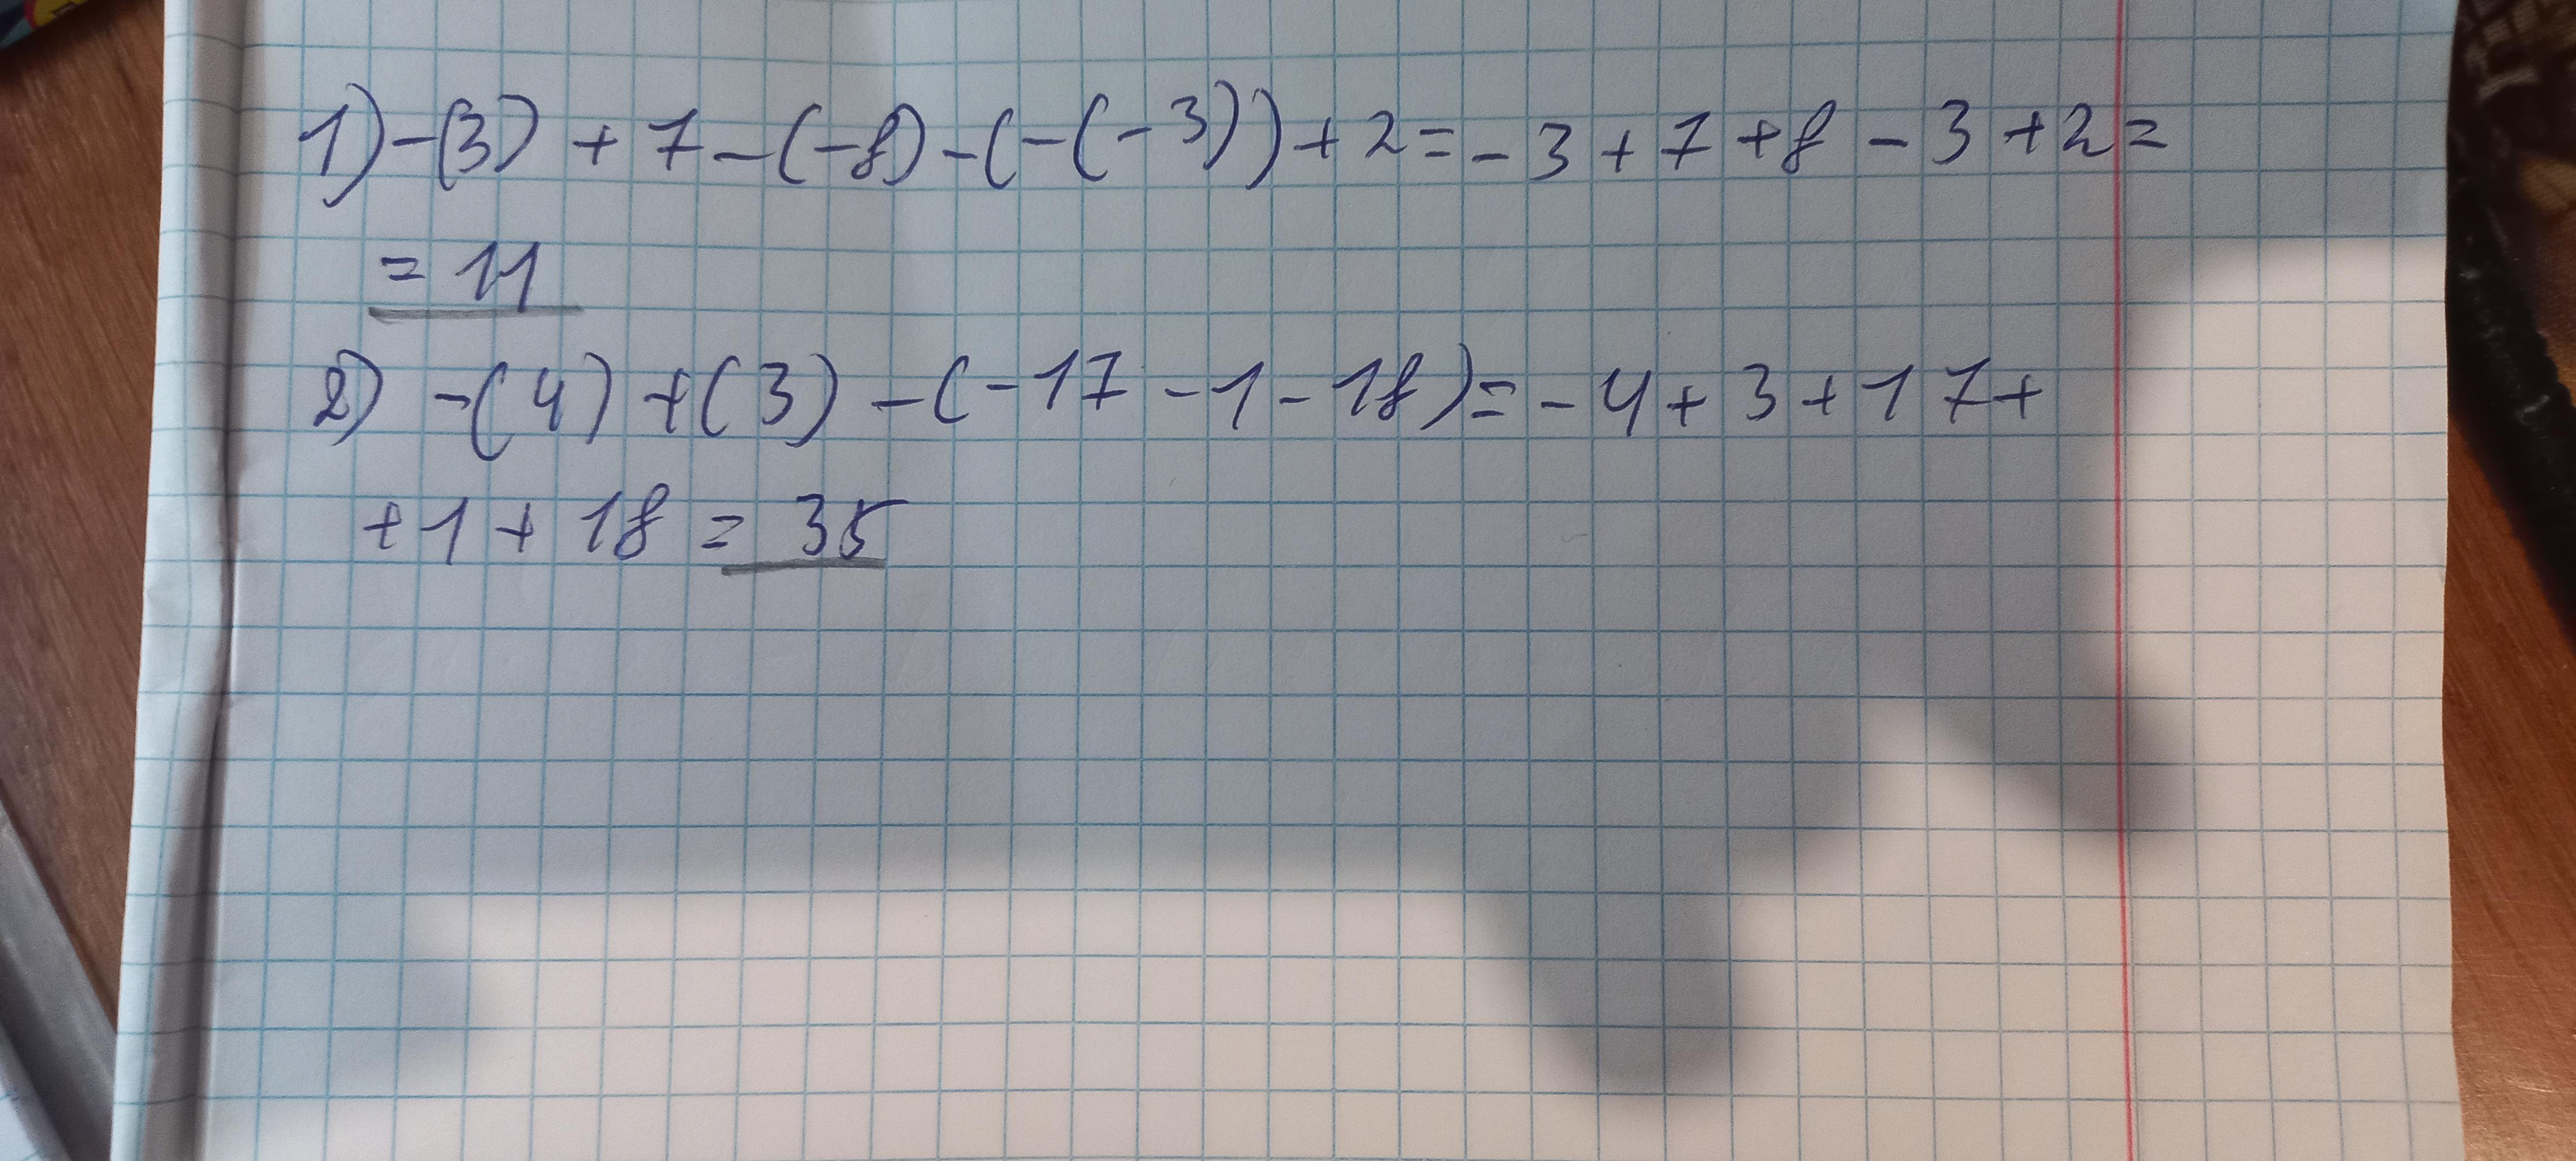 1) -(3) + 7 - (-8) - (-(-3)) + 2 = - 3 + 7 + 8 - 3 + 2 =
= 11
2) -(4) + (3) - (-17 - 1 - 18) = - 4 + 3 + 17 +
+ 1 + 18 = 35